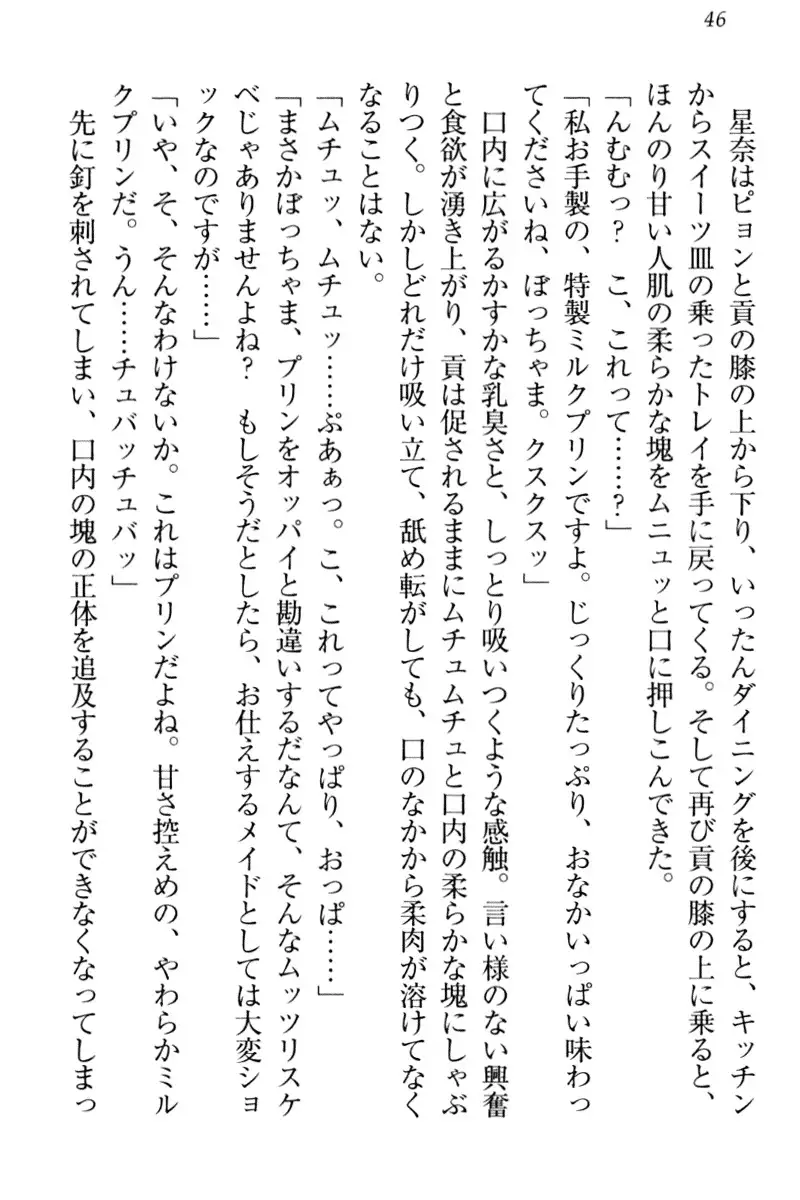 46
星奈はピョンと貢の膝の上から下り、いったんダイニングを後にすると、キッチン
からスイーツ皿の乗ったトレイを手に戻ってくる。そして再び貢の膝の上に乗ると、
ほんのり甘い人肌の柔らかな塊をムニュッと口に押しこんできた。
「んむむっ？　こ、これって……？」
「私お手製の、特製ミルクプリンですよ。じっくりたっぷり、おなかいっぱい味わっ
てくださいね、ぼっちゃま。クスクスッ」
口内に広がるかすかな乳臭さと、しっとり吸いつくような感触。言い様のない興奮
と食欲が湧き上がり、貢は促されるままにムチュムチュと口内の柔らかな塊にしゃぶ
りつく。しかしどれだけ吸い立て、舐め転がしても、口のなかから柔肉が溶けてなく
なることはない。
「ムチュッ、ムチュッ……ぷあぁっ。こ、これってやっぱり、おっぱ……」
「まさかぼっちゃま、プリンをオッパイと勘違いするだなんて、そんなムッツリスケ
べじゃありませんよね？　もしそうだとしたら、お仕えするメイドとしては大変ショ
ックなのですが……」
「いや、そ、そんなわけないか。これはプリンだよね。甘さ控えめの、やわらかミル
クプリンだ。うん……チュバッチュバッ」
先に釘を刺されてしまい、口内の塊の正体を追及することができなくなってしまっ